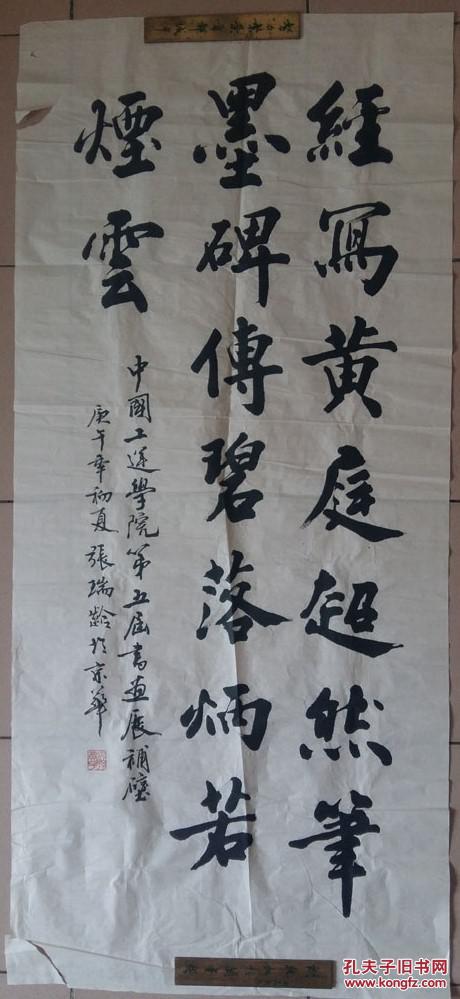 經寫黃庭超然筆
墨碑傳碧落炳若
煙雲
中國工運學院第五届書画展補壁
庚午年初夏張瑞齡於京華
孔夫子旧书网
www.kongfz.com